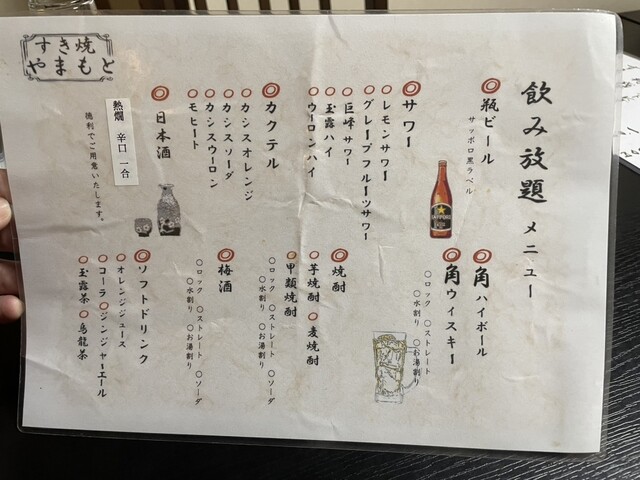 飲み放題 メニュー
瓶ビール
サッポロ黒ラベル
角ハイボール
角ウィスキー
○ロック ○ストレート
○水割り ○お湯割り
サワー
レモンサワー
グレープフルーツサワー
巨峰サワー
玉露ハイ
ウーロンハイ
焼酎
芋焼酎 麦焼酎
甲類焼酎
○ロック ○ストレート ○ソーダ
○水割り ○お湯割り
カクテル
カシスオレンジ
カシスソーダ
カシスウーロン
モヒート
梅酒
○ロック ○ストレート ○ソーダ
○水割り ○お湯割り
日本酒
熱燗 辛口 一合
徳利でご用意いたします。
ソフトドリンク
オレンジジュース
コーラ ジンジャーエール
玉露茶 烏龍茶
すき焼
やまもと
SAPPORO